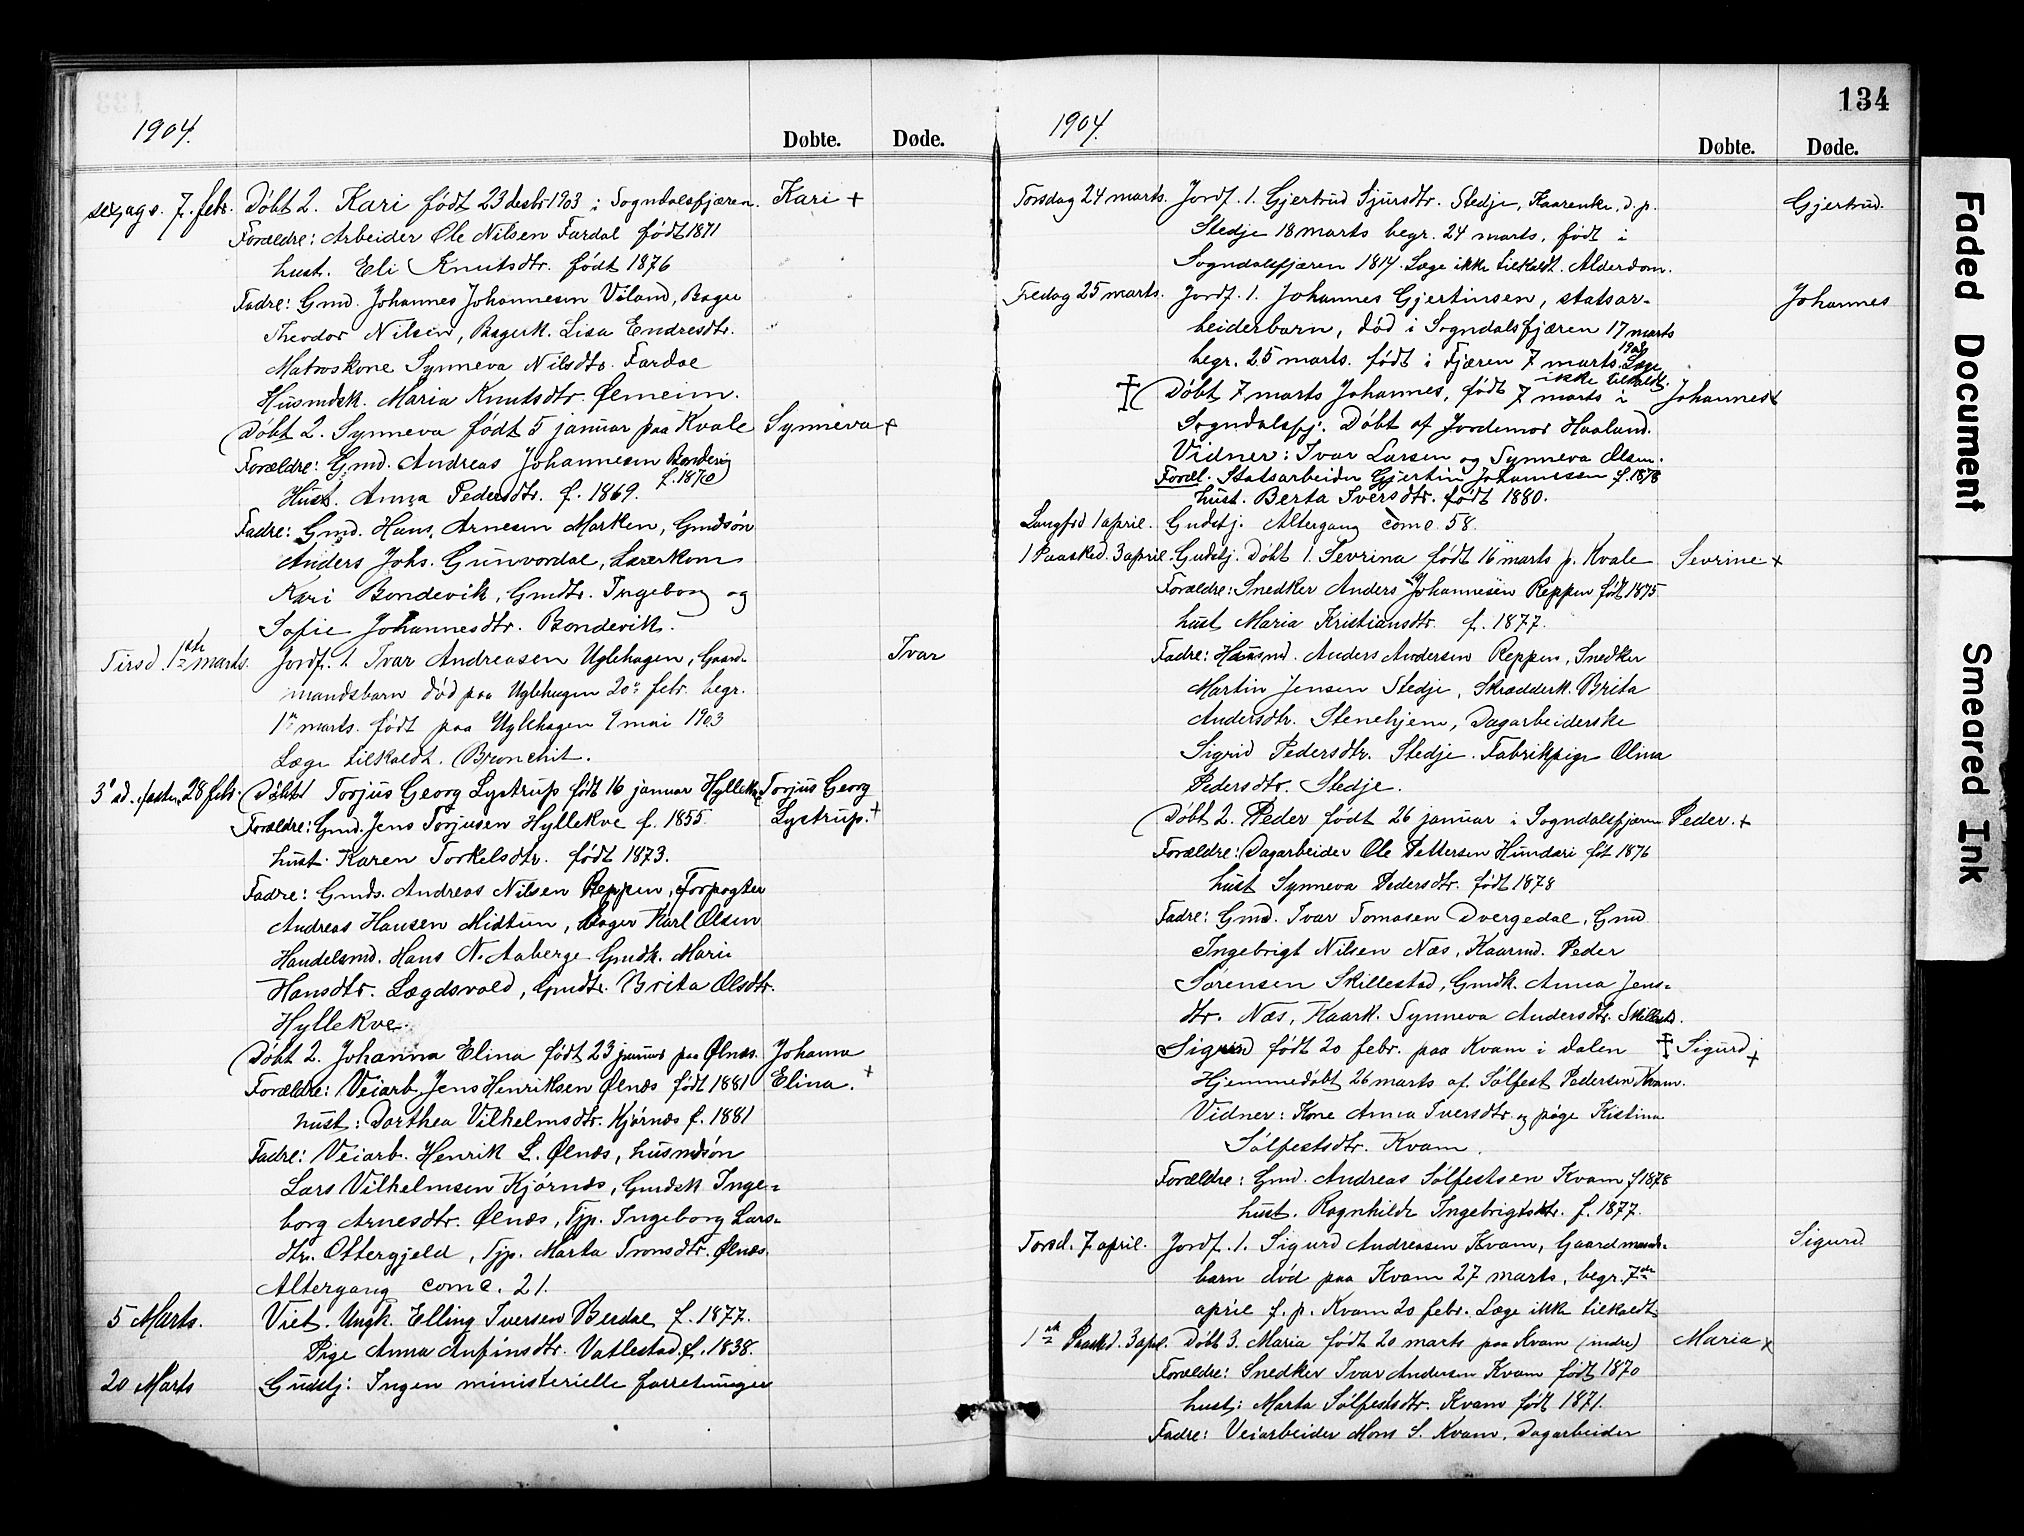 1904.
Døbte. Døde.
sexags. 7. febr. Døbt 2. Kari født 23 desbr 1903 i Sogndalsfjæren. Kari +
Forældre: Arbeider Ole Nilsen Fardal født 1871
hust. Eli Knutsdtr. født 1876
Fadre: Gmd. Johannes Johannesen Viland, Bager
Theodor Nilsen, Bagerk. Lisa Endresdtr.
Matroskone Synneva Nilsdtr. Fardal
Husmdsk. Maria Knutsdtr. Ølmeim.
Døbt 2. Synneva født 5 januar paa Kvale Synneva +
Forældre: Gmd. Andreas Johannesen Bondevig
f. 1870
Hust. Anna Pedersdtr. f. 1869.
Fadre: Gmd. Hans Arnesen Marken, Gmdsøn
Anders Johs. Gunvordal, Lærerkone
Kari Bondevik, Gmdtr. Ingeborg og
Sofie Johannesdtr. Bondevik.
Tirsd. 1ste marts. Jordf. 1. Ivar Andreasen Uglehagen, Gaard- Ivar
mandsbarn død paa Uglehagen 20de febr. begr.
1ste marts. født paa Uglehagen 9 mai 1903
Læge tilkaldt. Bronchit.
3die sd. i fasten 28 febr. Døbt 1 Torjus Georg Lystrup født 16 januar Hyllekve Torjus Georg
Forældre: Gmd. Jens Torjusen Hyllekve f. 1855. Lystrup. +
hust. Karen Torkelsdtr. født 1873.
Fadre: Gmds. Andreas Nilsen Reppen, Forpagter
Andreas Hansen Midtun, Bager Karl Olsen
Handelsmd. Hans N. Aaberge Gmdk. Mari
Hansdtr. Lægdsvold, Gmdtr. Brita Olsdtr.
Hyllekve.
Døbt 2. Johanna Elina født 23 januar paa Ølnæs. Johanna
Forældre: Veiarb. Jens Henriksen Ølnæs født 1881 Elina. +
hust: Dorthea Vilhelmsdtr. Kjørnæs f. 1881
Fadre: Veiarb. Henrik L. Ølnæs, husmdsøn
Lars Vilhelmsen Kjørnæs, Gmdsk Inge-
borg Arnesdtr. Ølnæs, Tjp. Ingeborg Lars-
dtr. Ottergjeld, Tjp. Marta Tronsdtr. Ølnæs.
Altergang comc. 21.
5 Marts. Viet. Ungk. Elling Iversen Berdal f. 1877.
Pige Anna Anfinsdtr. Vatlestad f. 1838.
20 Marts Gudstj: Ingen ministerielle forretninger
1904.
134
Døbte. Døde.
Torsdag 24 marts. Jordf. 1. Gjertrud Sjursdtr. Stedje, Kaarenke, d. p. Gjertrud.
Stedje 18 marts begr. 24 marts, født i
Sogndalsfjæren 1814. Læge ikke tilkaldt. Alderdom.
Fredag 25 marts. Jordf. 1. Johannes Gjertinsen, statsar- Johannes
beiderbarn, død i Sogndalsfjæren 17 marts
begr. 25 marts. født i Fjæren 7 marts 1904 Læge
ikke tilkaldt.
Døbt 7 marts Johannes, født 7 marts i Johannes +
Sogndalsfj. Døbt af Jordemor Haaland.
Vidner: Ivar Larsen og Synneva Olsen.
Foræl. Statsarbeider Gjertin Johannessen f. 1878
hust. Berta Iversdtr. født 1880.
Langfrd 1 april. Gudstj. Altergang comc. 58.
1 Paasked. 3 april. Gudstj. Døbt 1. Sevrina født 16 marts p. Kvale Sevrine +
Forældre: Snedker Anders Johannesen Reppen født 1875
hust Maria Kristiansdtr. f. 1877.
Fadre: Husmd. Anders Andersen Reppen, Snedker
Martin Jensen Stedje, Skrædderk. Brita
Andersdtr. Stenehjem, Dagarbeiderske
Sigrid Pedersdtr. Stedje. Fabrikpige Olina
Pedersdtr. Stedje.
Døbt 2. Peder født 26 januar i Sogndalsfjæren Peder. +
Forældre: Dagarbeider Ole Pettersen Hundari føt 1876
hust Synneva Pedersdtr. født 1878
Fadre: Gmd. Ivar Tomasen Dvergedal, Gmd.
Ingebrigt Nilsen Næs, Kaarmd. Peder
Sørensen Skillestad, Gmdk. Anna Jens-
dtr. Næs, Kaark. Synneva Andersdtr. Skillestd.
Sigurd født 20 febr. paa Kvam i dalen Sigurd +
Hjemmedøbt 26 marts af Sølfest Pedersen Kvam.
Vidner: Kone Anna Iversdtr. og pige Kistina
Sølfestsdtr. Kvam.
Forældre: Gmd. Andreas Sølfestsen Kvam f 1878
hust. Ragnhilde Ingebrigtsdtr. f. 1877.
Torsd. 7 april. Jordf. 1. Sigurd Andreasen Kvam, Gaardmands- Sigurd
barn død paa Kvam 27 marts, begr. 7de
april f. p. Kvam 20 febr. Læge ikke tilkaldt.
1ste Paaskd. 3 apl. Døbt 3. Maria født 20 marts paa Kvam (indre) Maria +
Forældre: Snedker Ivar Andersen Kvam født 1870
hust: Marta Sølfestsdtr. Kvam født 1871.
Fadre: Veiarbeider Mons S. Kvam, Dagarbeider
Faded Document
Smeared Ink